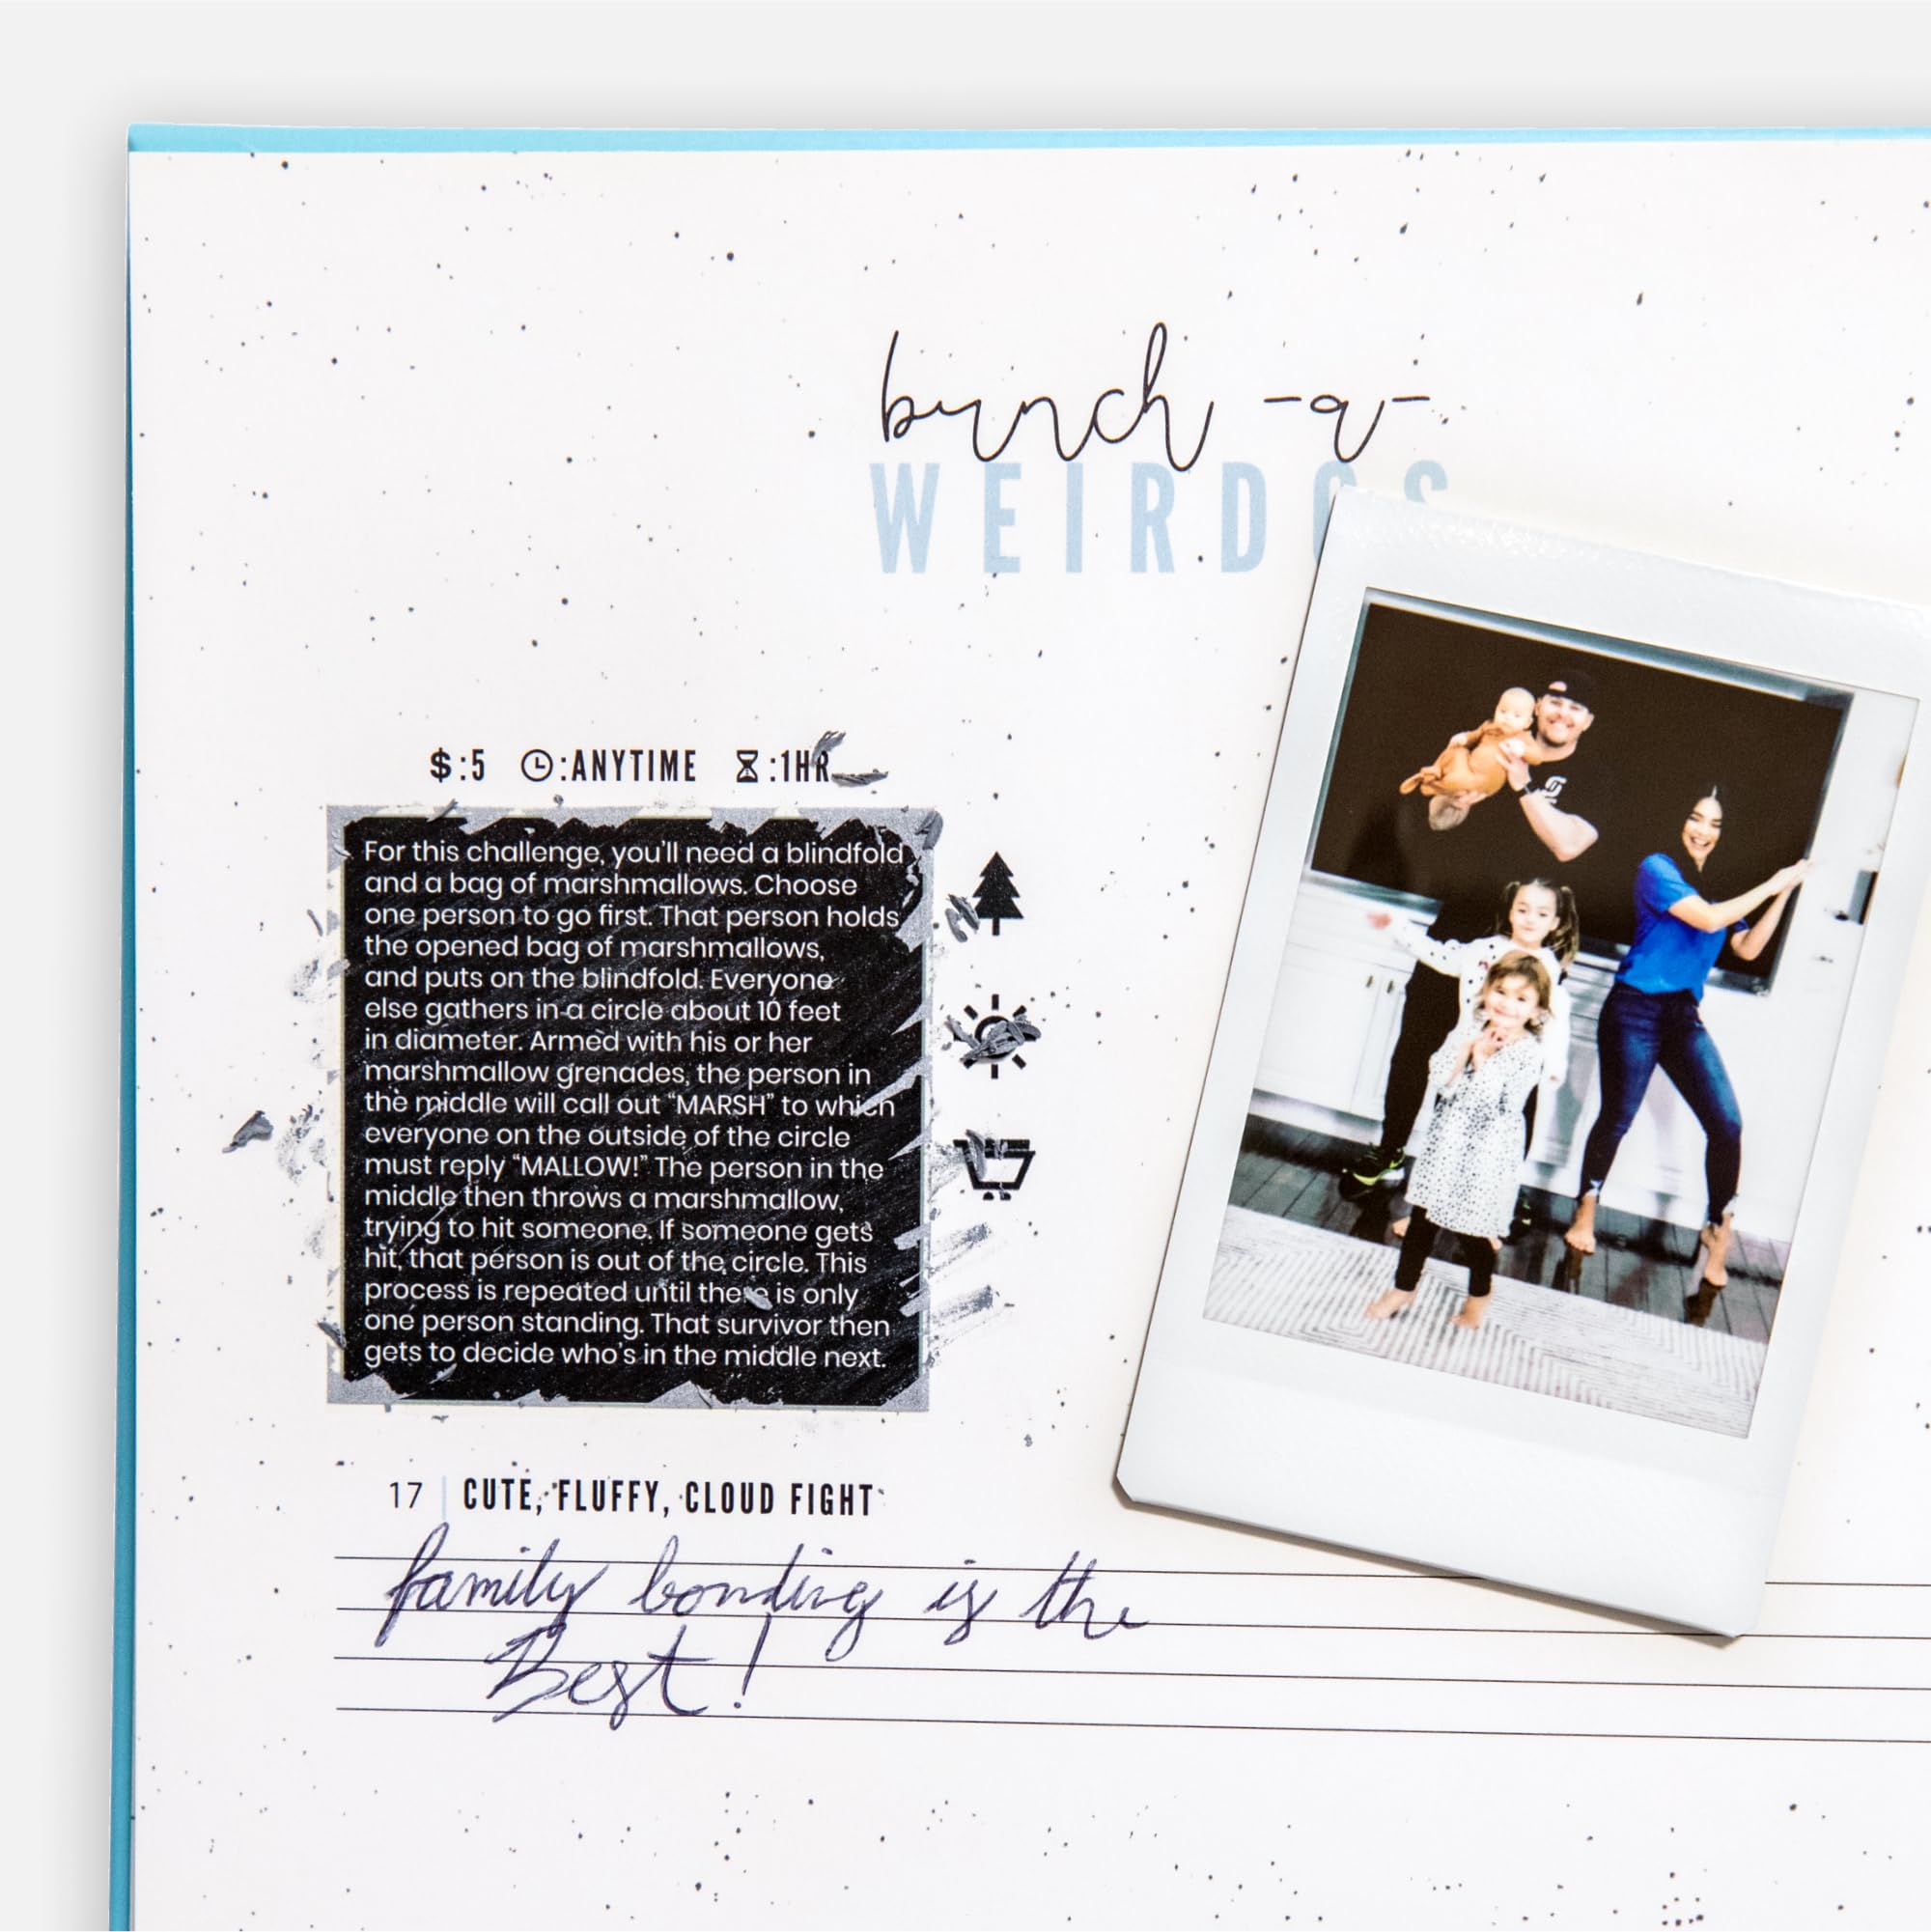 bunch -a-
WEIRDOS
$:5 :ANYTIME :1HR
For this challenge, you'll need a blindfold
and a bag of marshmallows. Choose
one person to go first. That person holds
the opened bag of marshmallows,
and puts on the blindfold. Everyone
else gathers in a circle about 10 feet
in diameter. Armed with his or her
marshmallow grenades, the person in
the middle will call out “MARSH” to which
everyone on the outside of the circle
must reply “MALLOW!” The person in the
middle then throws a marshmallow,
trying to hit someone. If someone gets
hit, that person is out of the circle. This
process is repeated until there is only
one person standing. That survivor then
gets to decide who's in the middle next.
17 | CUTE, FLUFFY, CLOUD FIGHT
family bonding is the
Best!